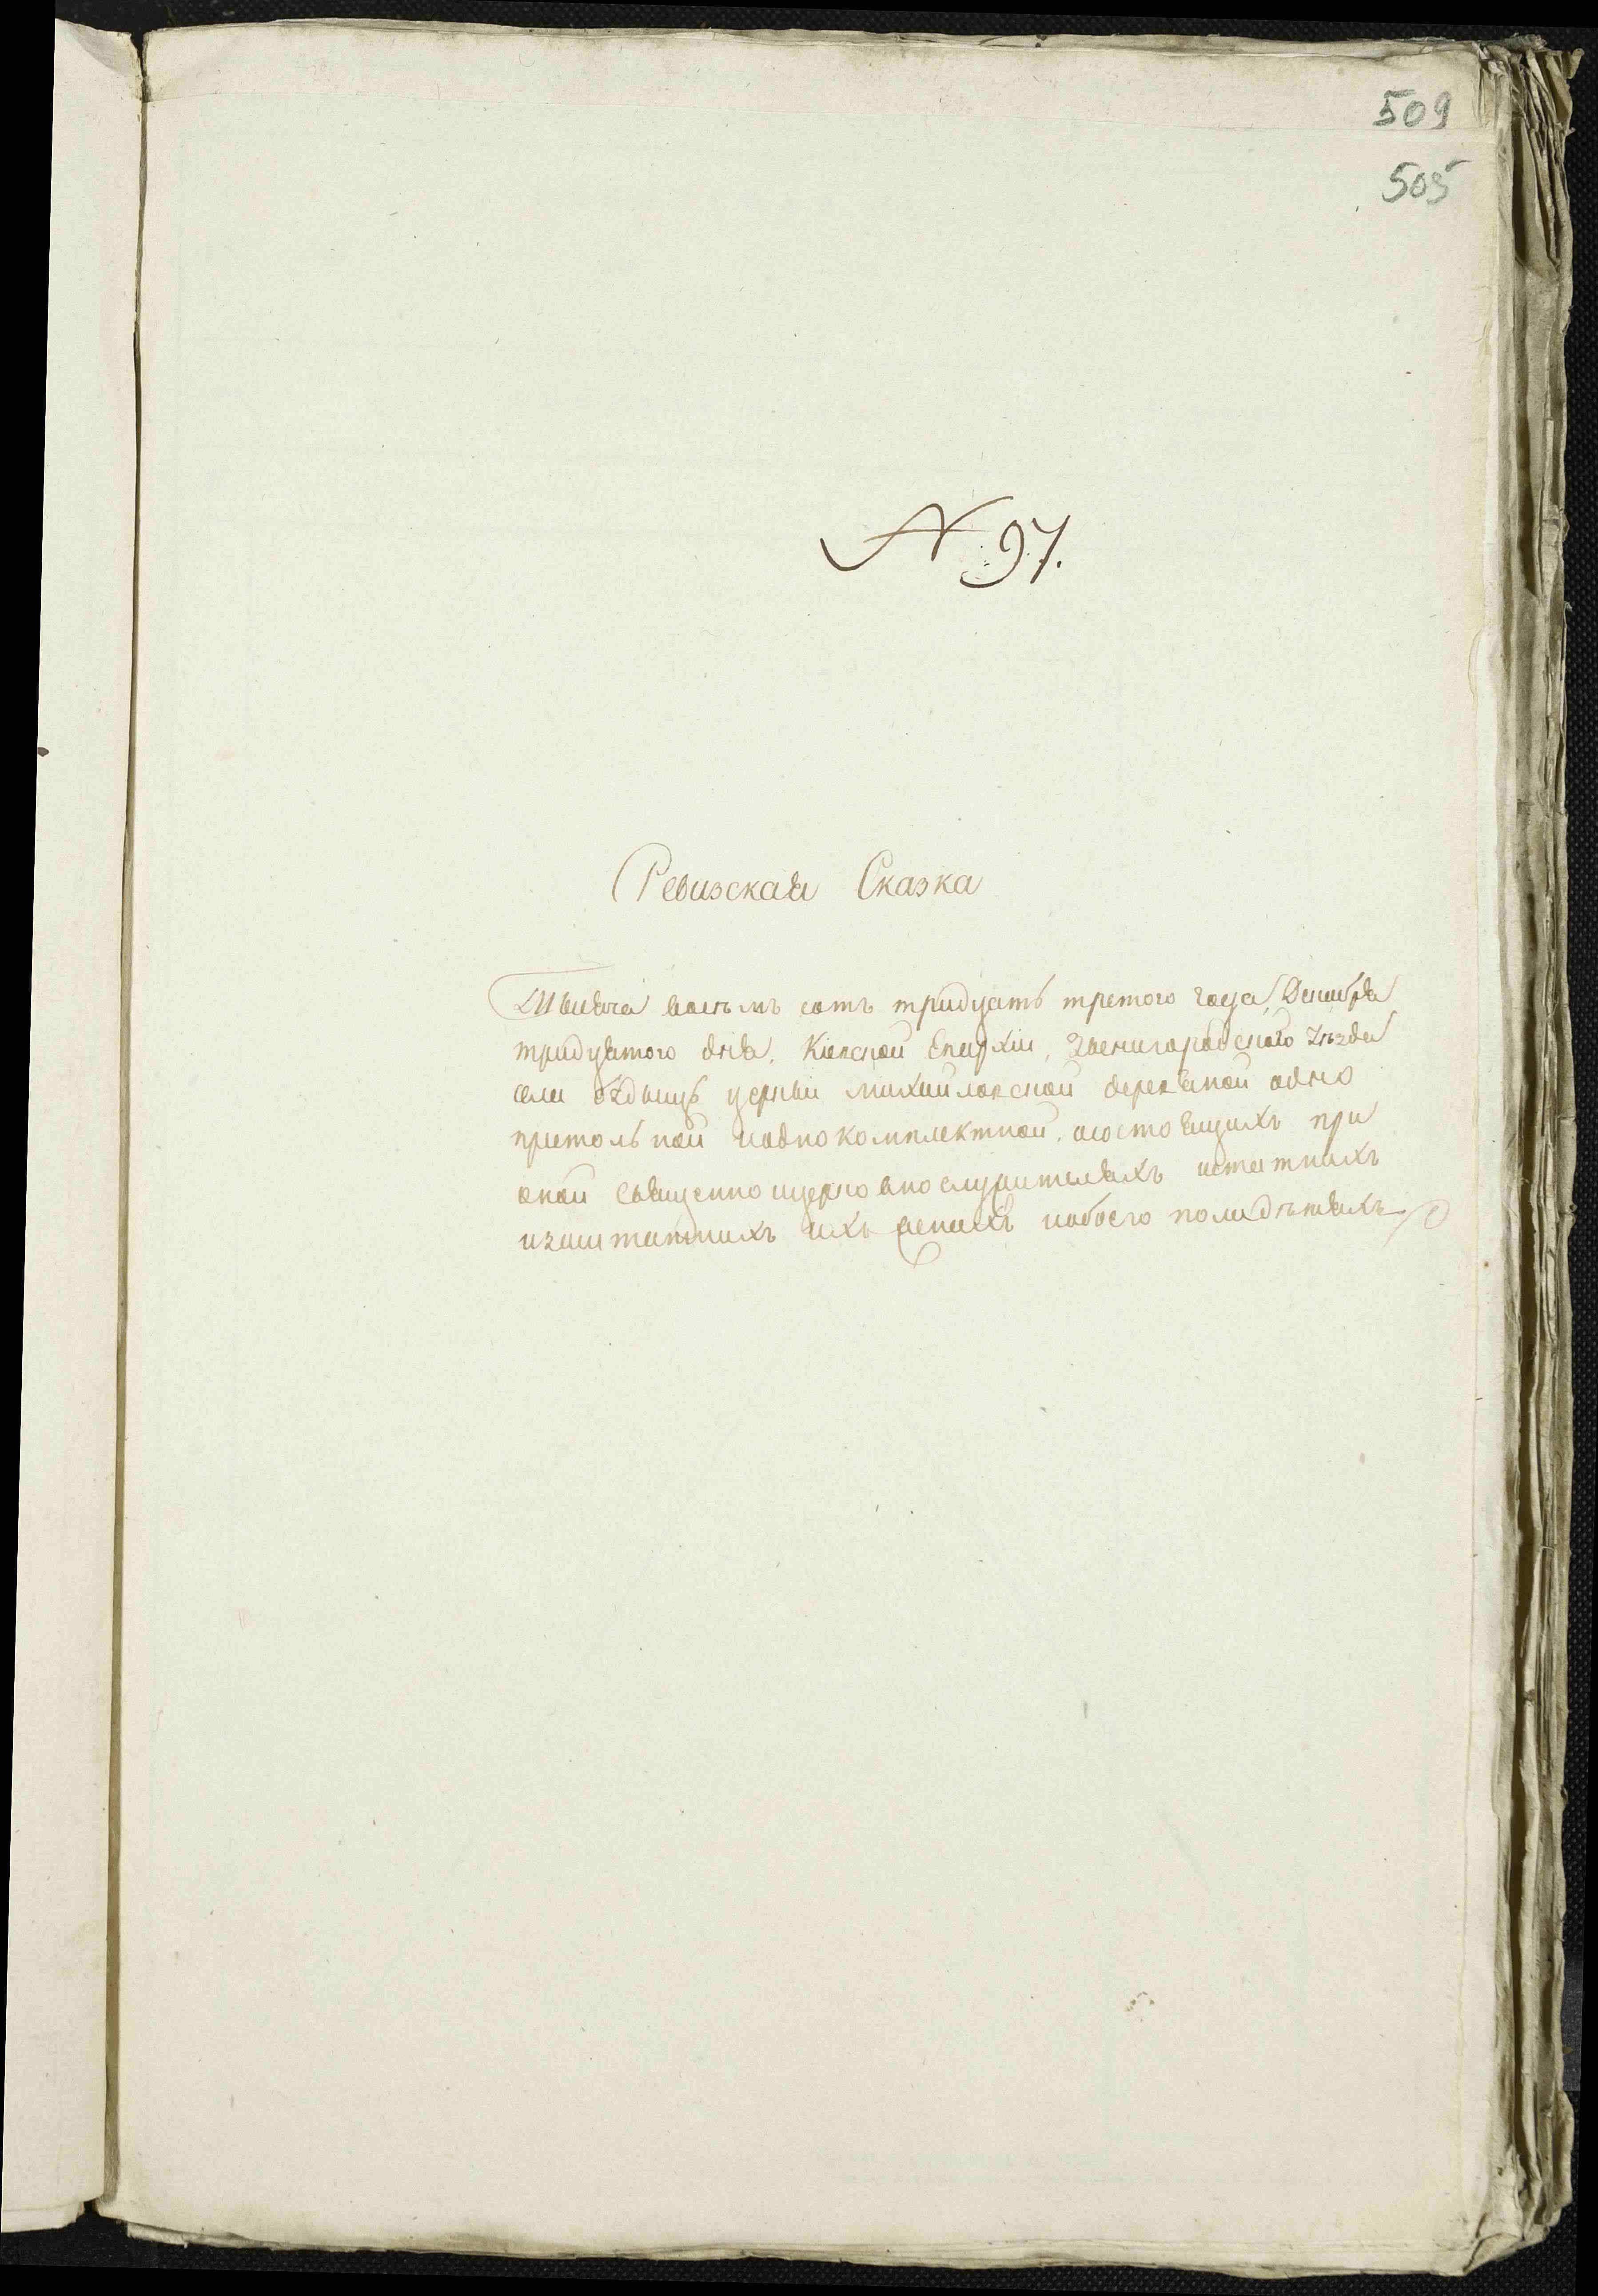 509
505
N 97.
Ревизская Сказка
Тысяча восѣмъ сотъ тридцать третого года, Декабря
тридцатого дня, Кіевской Епархіи, Звенигородского уѣзда
села церкви Михайловской деревяной одно
престольной иоднокомплектной, осостоящихъ при
оной священно ицерковнослужителяхъ иштатныхъ
изаштатныхъ ихъ женахъ иобоего пола дѣтяхъ